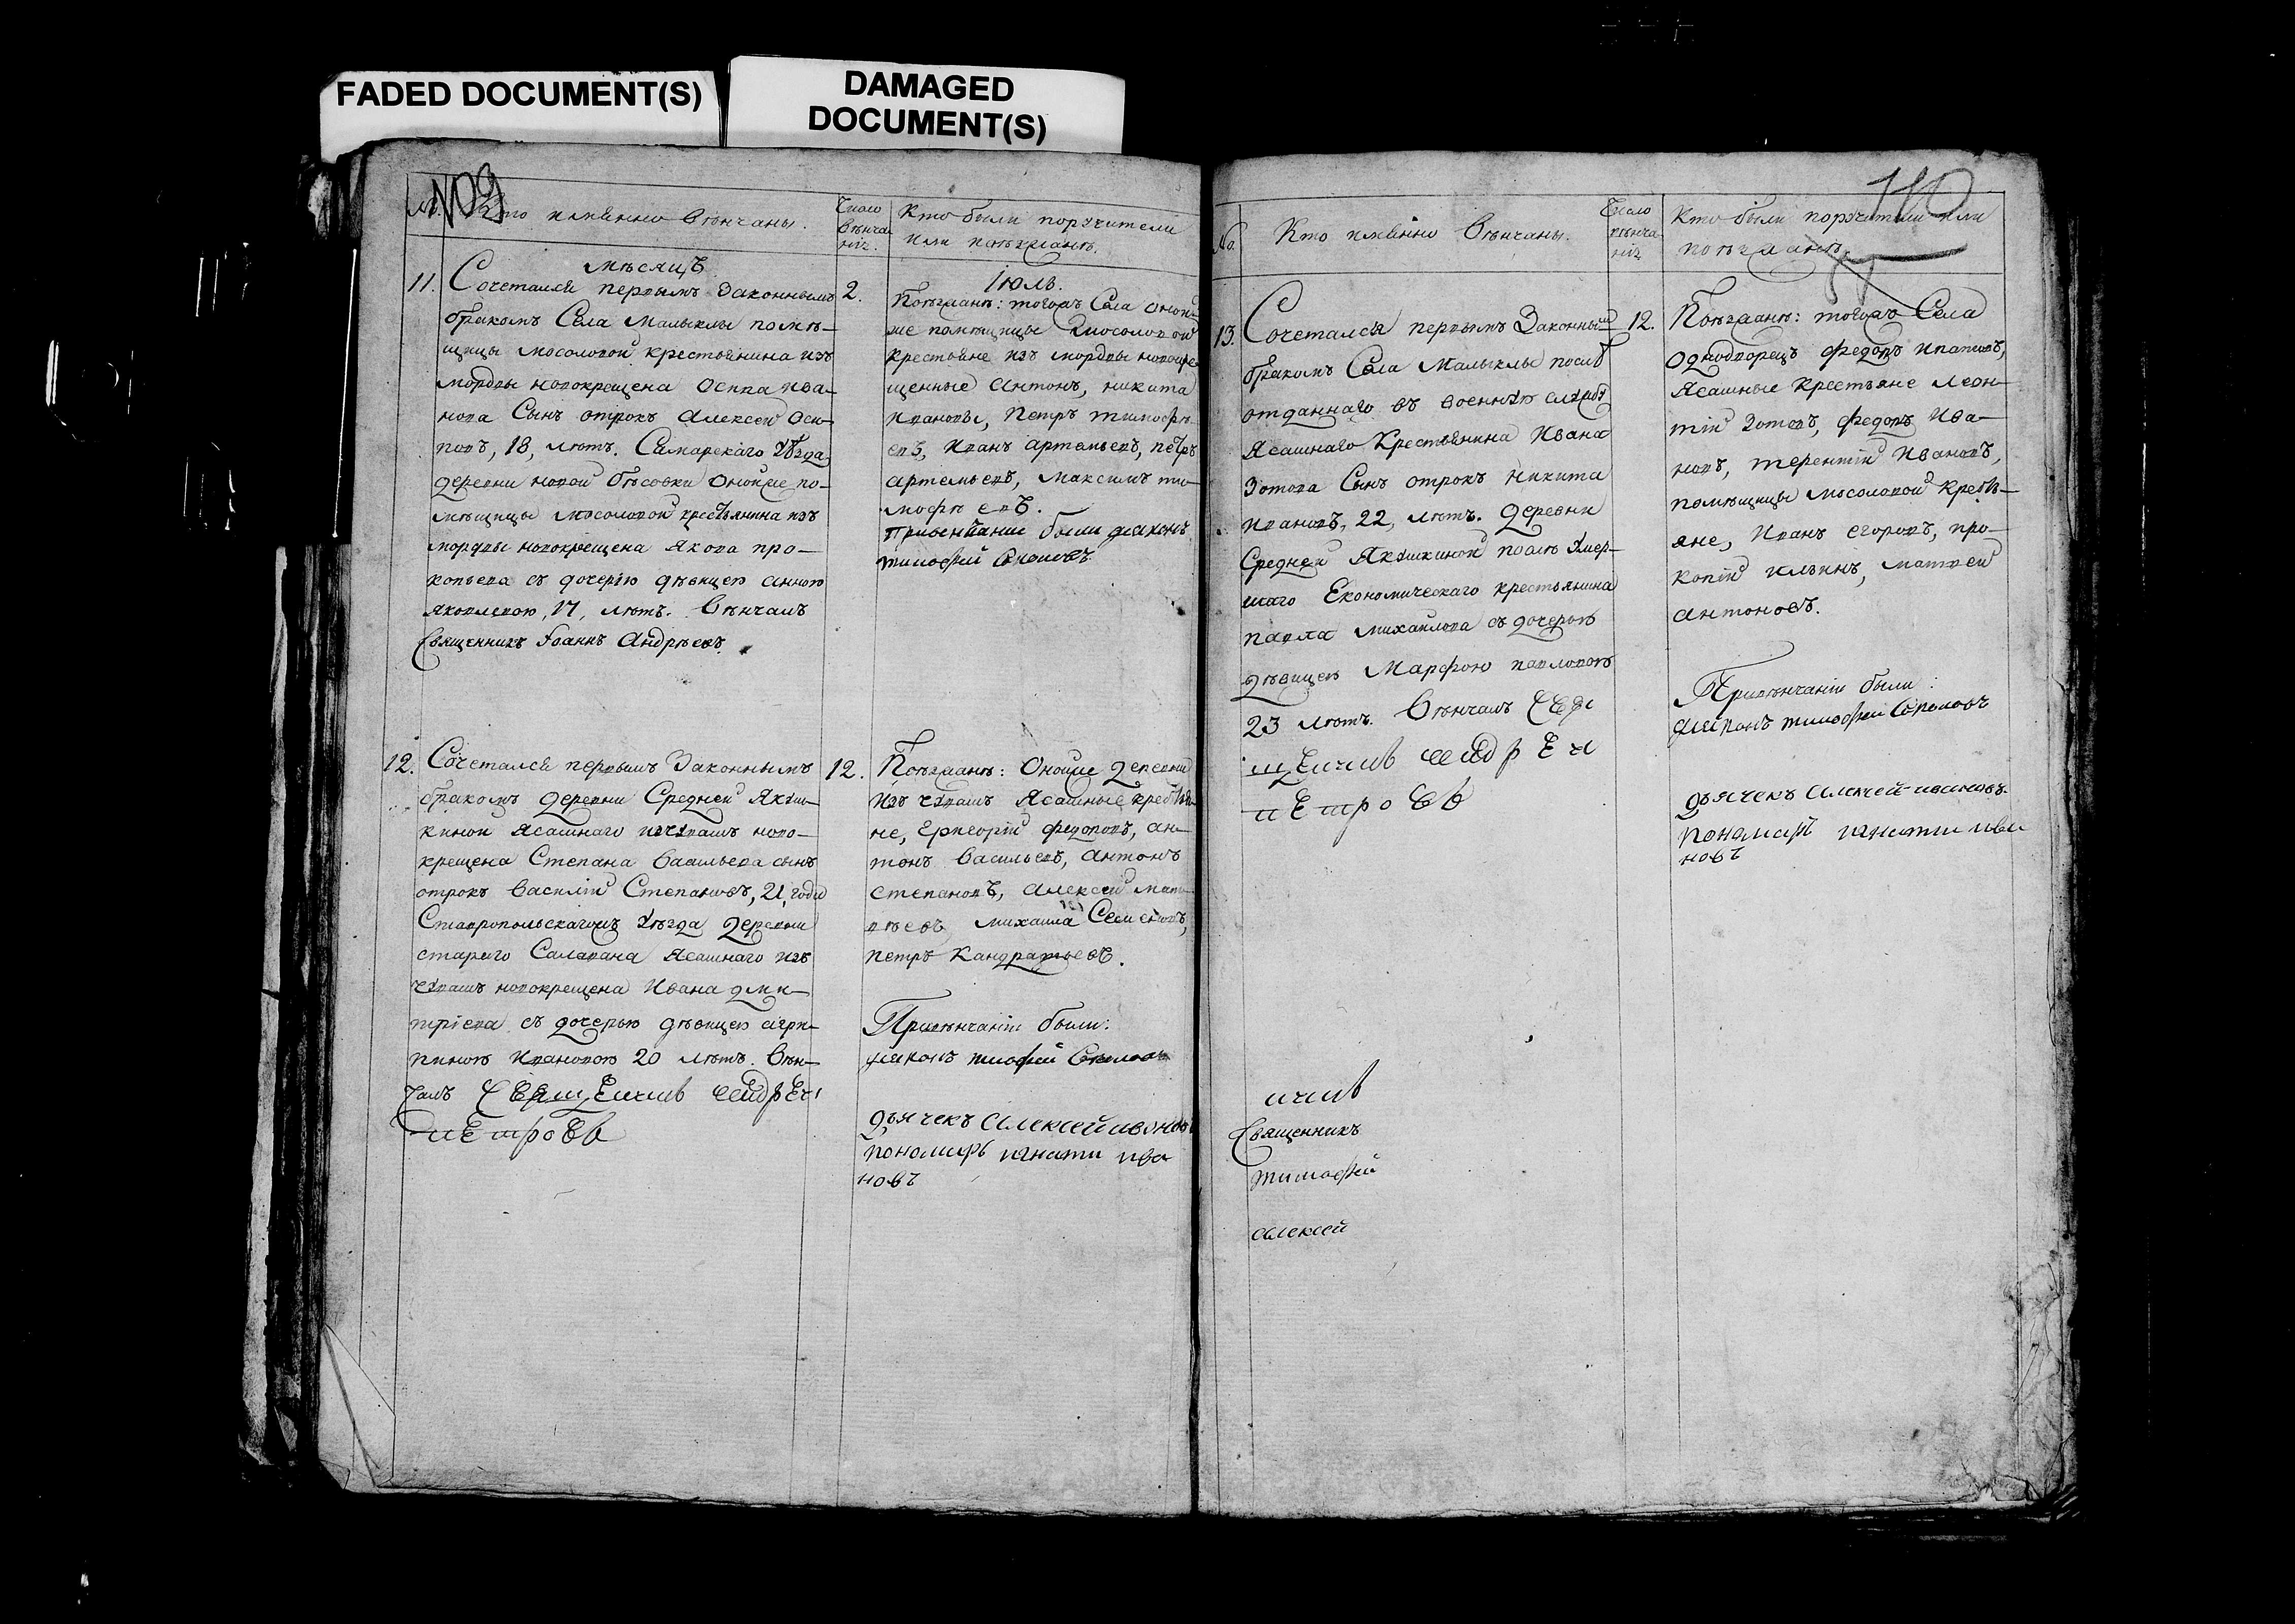 FADED DOCUMENT(S)
DAMAGED
DOCUMENT(S)
109
№ Кто имянно Венчаны.
Число
венча
нiя.
Кто были поручители
или поезжанѣ.
мѣсяцъ
Iюль.
11. Сочетался первымъ Законнымъ
бракомъ Села Малыклы помѣ-
щицы мосоловой крестьянина изъ
мордвы новокрещена Осипа ива-
нова Сынъ отрокъ Алексей Оси-
повъ, 18, лѣтъ. Самарскаго уѣзда
деревни новой Бѣсовки Оной же по-
мѣщицы мосоловой крестьянина изъ
мордвы новокрещена Якова про-
копьева съ дочерiю дѣвицею анною
яковлевою, 17, лѣтъ. Вѣнчалъ
Священникъ Iоаннъ Андрѣевъ.
2.
Поѣзжанѣ: тогожъ Села оной
же помѣщицы мосоловой
крестьяне изъ мордвы новокре
щенные антонъ, никита
ивановы, Петръ тимофѣ
евъ, иванъ артемьевъ, петръ
артемьевъ, максимъ ти-
мофѣевъ.
При венчанiи были диаконъ
тимофей
12. Сочетался первымъ Законнымъ
бракомъ деревни Средней Якуш-
киной Ясашнаго изчувашъ ново-
крещена Степана Васильева сынъ
отрокъ Василiй Степановъ, 21, года
Ставропольскагожъ уѣзда деревни
стараго Салавана Ясашнаго изъ
чувашъ новокрещена Ивана дми-
трiева съ дочерью дѣвицею агри-
пиною ивановою 20 лѣтъ. Вѣн-
чалъ Священникъ андрей
петровъ
12.
Поѣзжанѣ: Оной же деревни
изъ чувашъ Ясашные крестья-
не, Григорiй федоровъ, ан-
тонъ васильевъ, антонъ
степановъ, алексей мат-
вѣевъ михаила Семеновъ,
петръ Кандратьевъ.
При вѣнчанiи были:
диаконъ тимофей
дьячекъ алексей ивановъ
пономарь игнати ива
новъ
110
№ Кто имянно Вѣнчаны.
Число
вѣнча
нiя
Кто были поручители или
поѣзжанѣ
13. Сочетался первымъ Законнымъ
бракомъ Села Малыклы послѣ
отданнаго въ военную службу
Ясашнаго Крестьянина Ивана
Зотова Сынъ отрокъ Никита
ивановъ, 22, лѣтъ. деревни
Средней Якушкиной послѣ умер-
шаго Економическаго крестьянина
павла михайлова съ дочерью
дѣвицею Марфою павловою
23 лѣтъ. Вѣнчалъ Свя
щенникъ андрей
петровъ
12.
Поѣзжанѣ: тогожъ Села
Однодворецъ федоръ ипатовъ,
Ясашные Крестьяне леон-
тiй Зотовъ, федоръ Ива-
новъ, терентiй Ивановъ,
помѣщицы мосоловой кресть-
яне, Иванъ егоровъ, про-
копiй ильинъ, матвей
антоновъ.
При вѣнчанiи были:
диаконъ тимофей
дьячекъ алексей ивановъ
пономарь игнати ива
новъ
Священникъ
тимофей
алексей